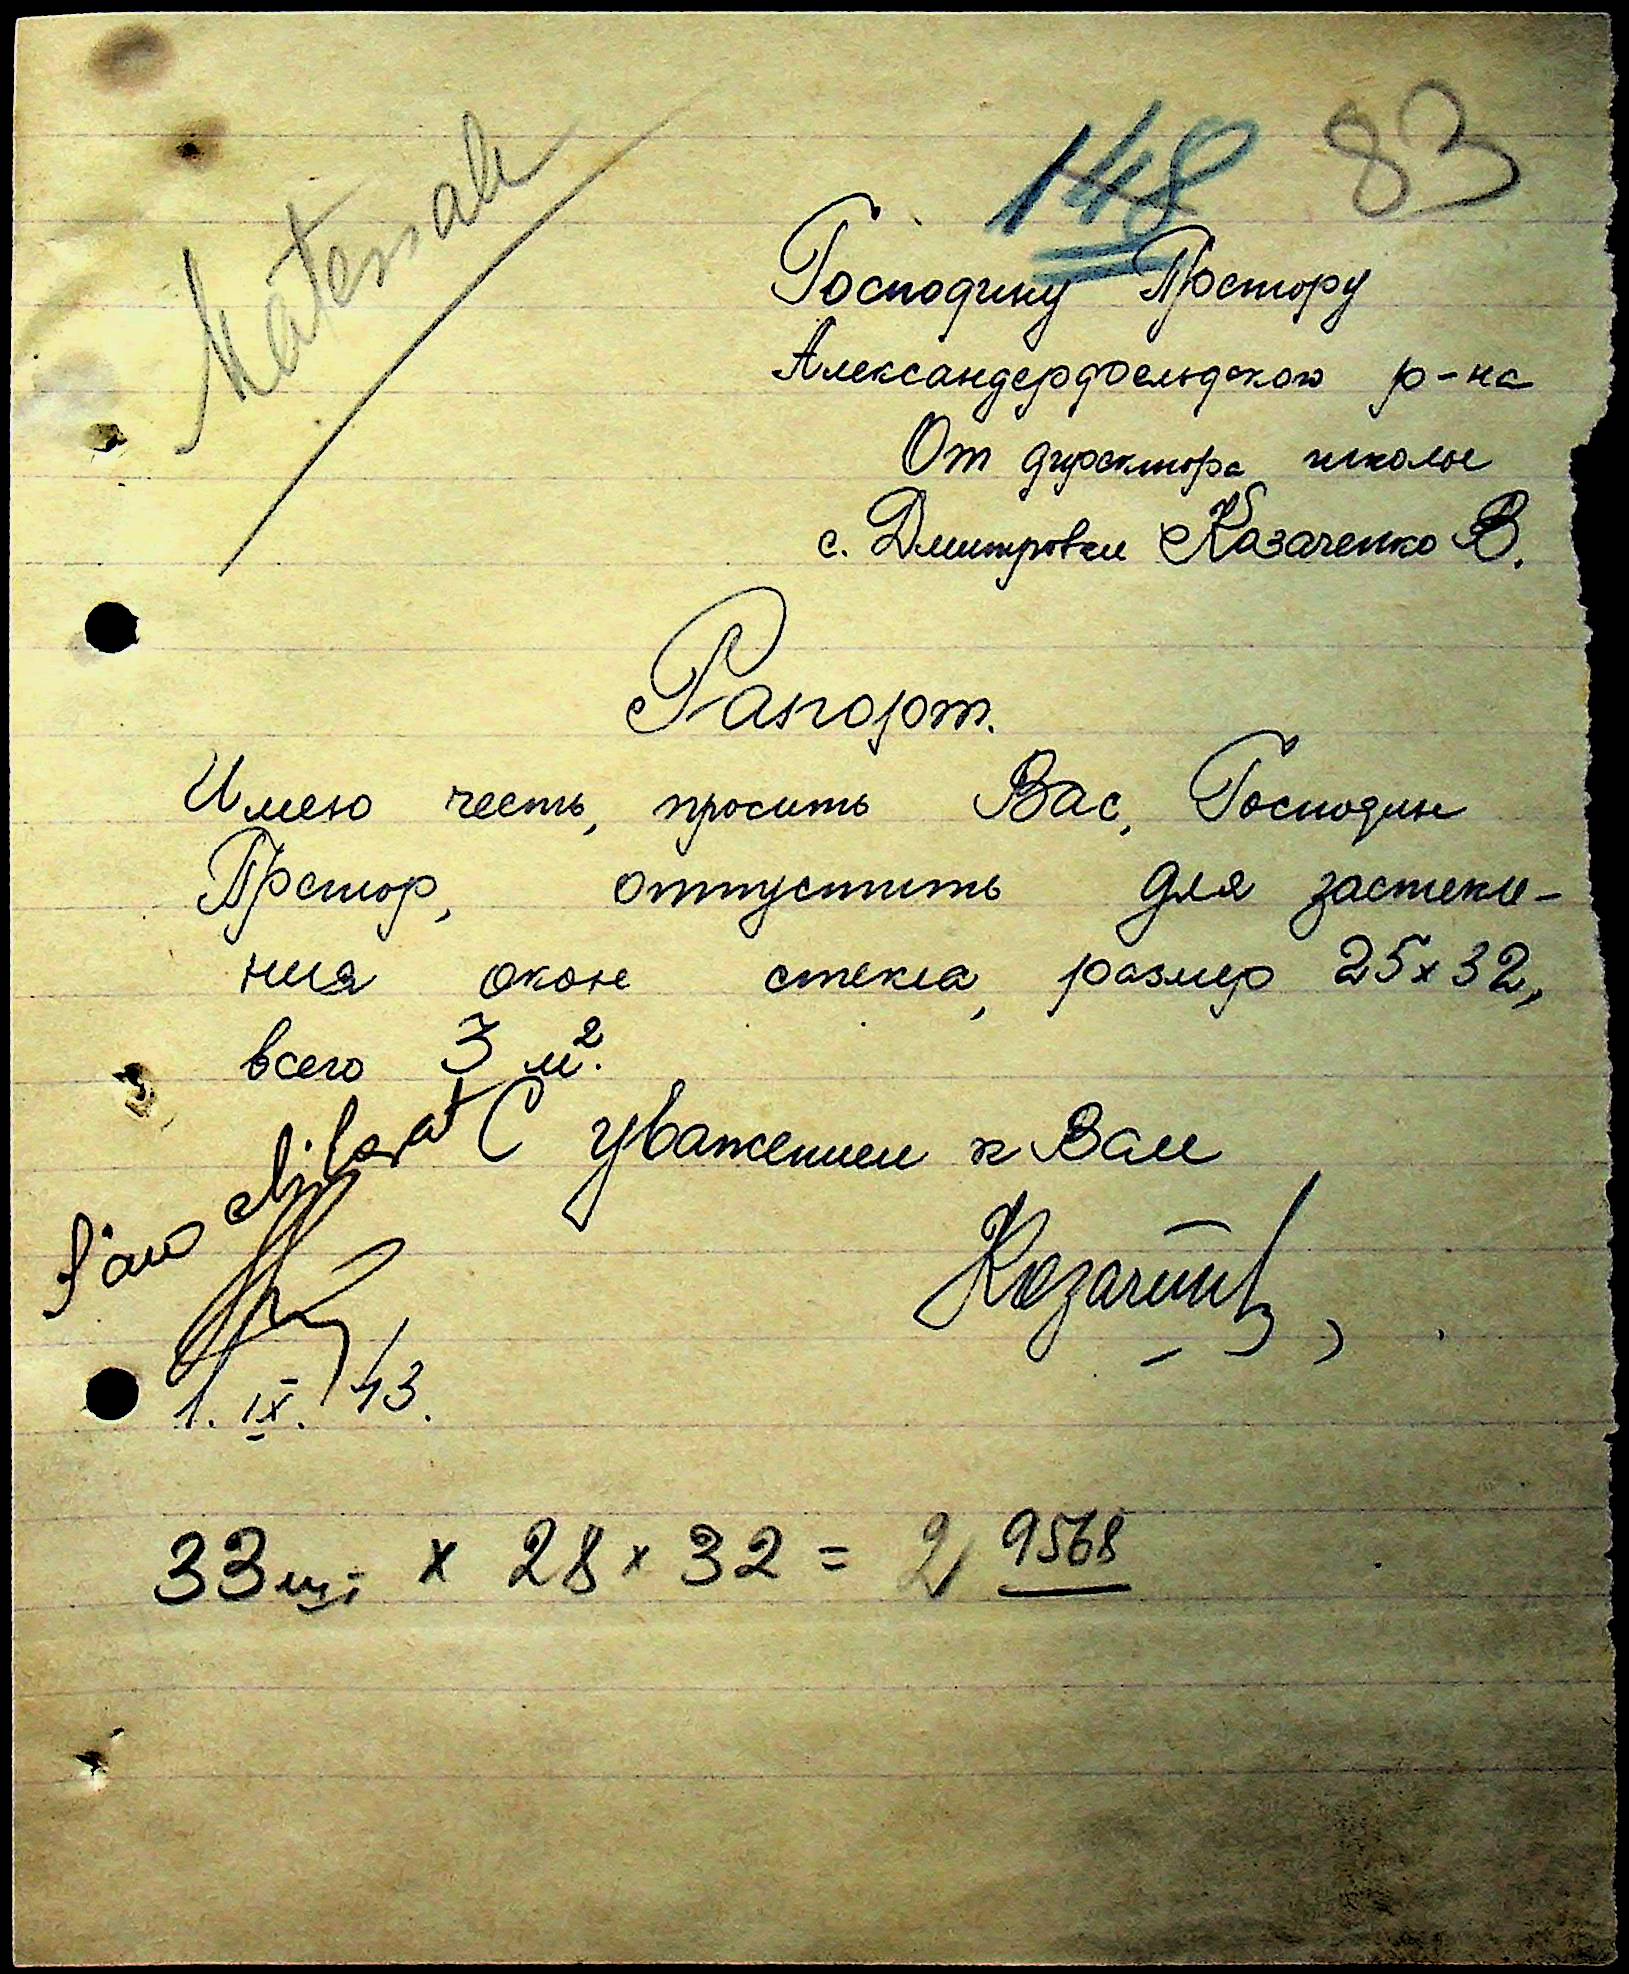 Materiale
148 83
Господину Претору
Александерфельдского р-на
От директора школы
с. Дмитровки Казаченко В.
Рапорт.
Имею честь, просить Вас, Господин
Претор, отпустить для застекле-
ния окон стекла, размер 25х32,
всего 3 м².
С уважением к Вам
S'au eliberat
Казаченко
1. IX. 43.
33 шт. х 28 х 32 = 2,9568